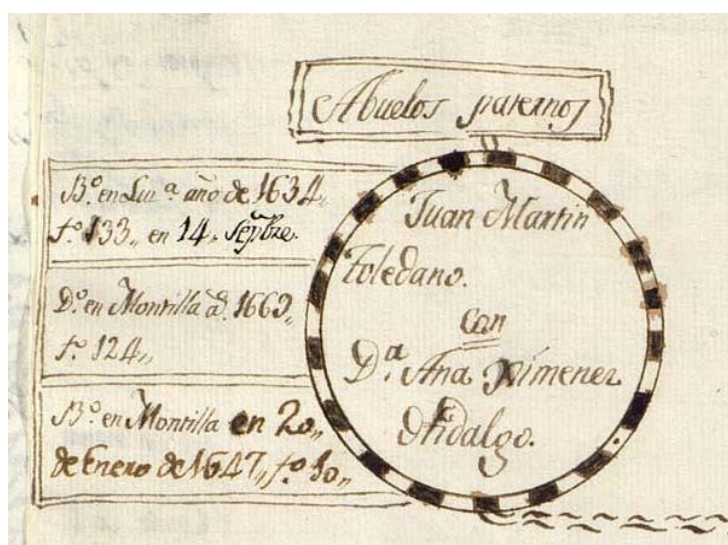 Abuelos paternos
Bº. en Luª. año de 1634„
fº 133„ en 14„ Sepbre.
Dº. en Montilla aº. 1669„
fº 124„
Bº. en Montilla en 20„
de Enero de 1647„ fº 30„
Juan Martin
Toledano.
con
Dª. Ana Ximenez
Hidalgo.